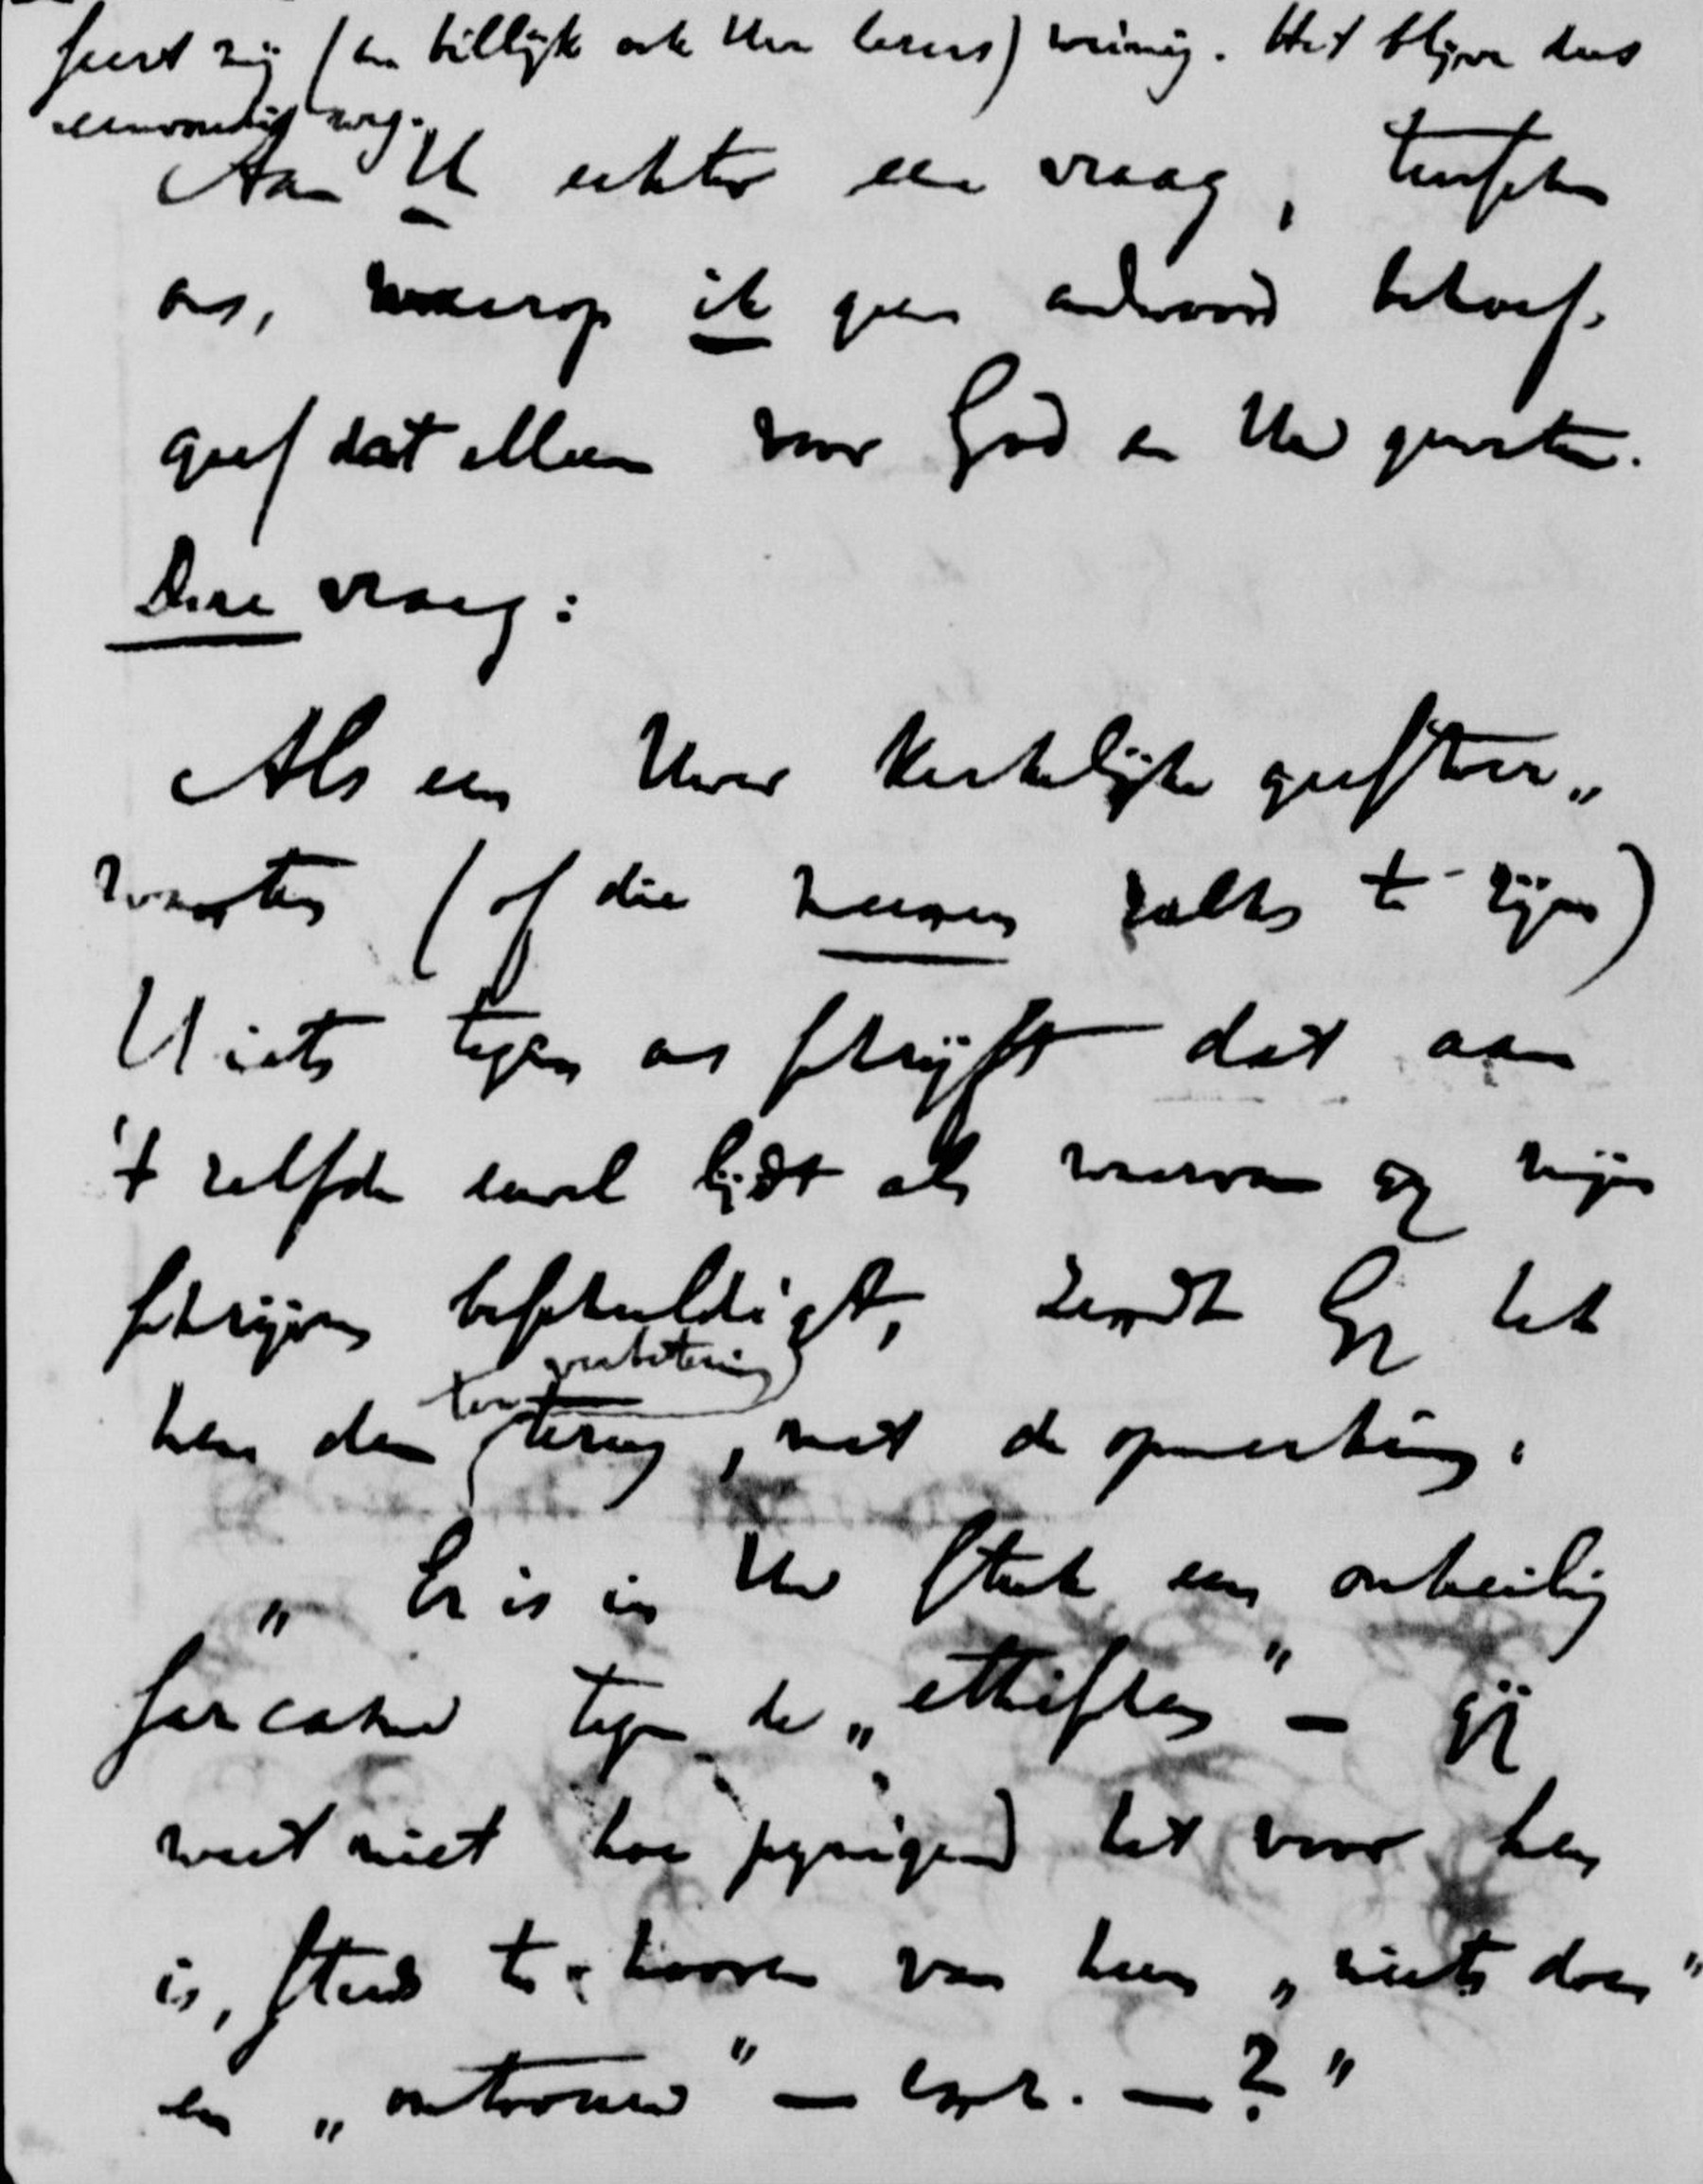 feert zij (en billijk ook Uw lezers) weinig. Het blijve dus
eenvoudig weg.
Aan U echter een vraag, tusschen
ons, waarop ik geen andwoord behoef.
geef dat alleen voor God en Uw geweten.
Deze vraag:
Als een Uwer Kerkelijke geestver„
wanten (of die meenen zulks te zijn)
U iets tegen ons schrijft dat aan
't zelfde euvel lijdt als waarvan gij mijn
schrijven beschuldigt, zendt Gij het
ter verbetering
hem dan terug, met de opmerking:
„Er is in Uw stuk een onheilig
sarcasme tegen de „ethischen" — gij
weet niet hoe pijnigend het voor hen
is, steeds te hooren van hun „niets doen"
en „ontrouw" — enz. — ?"